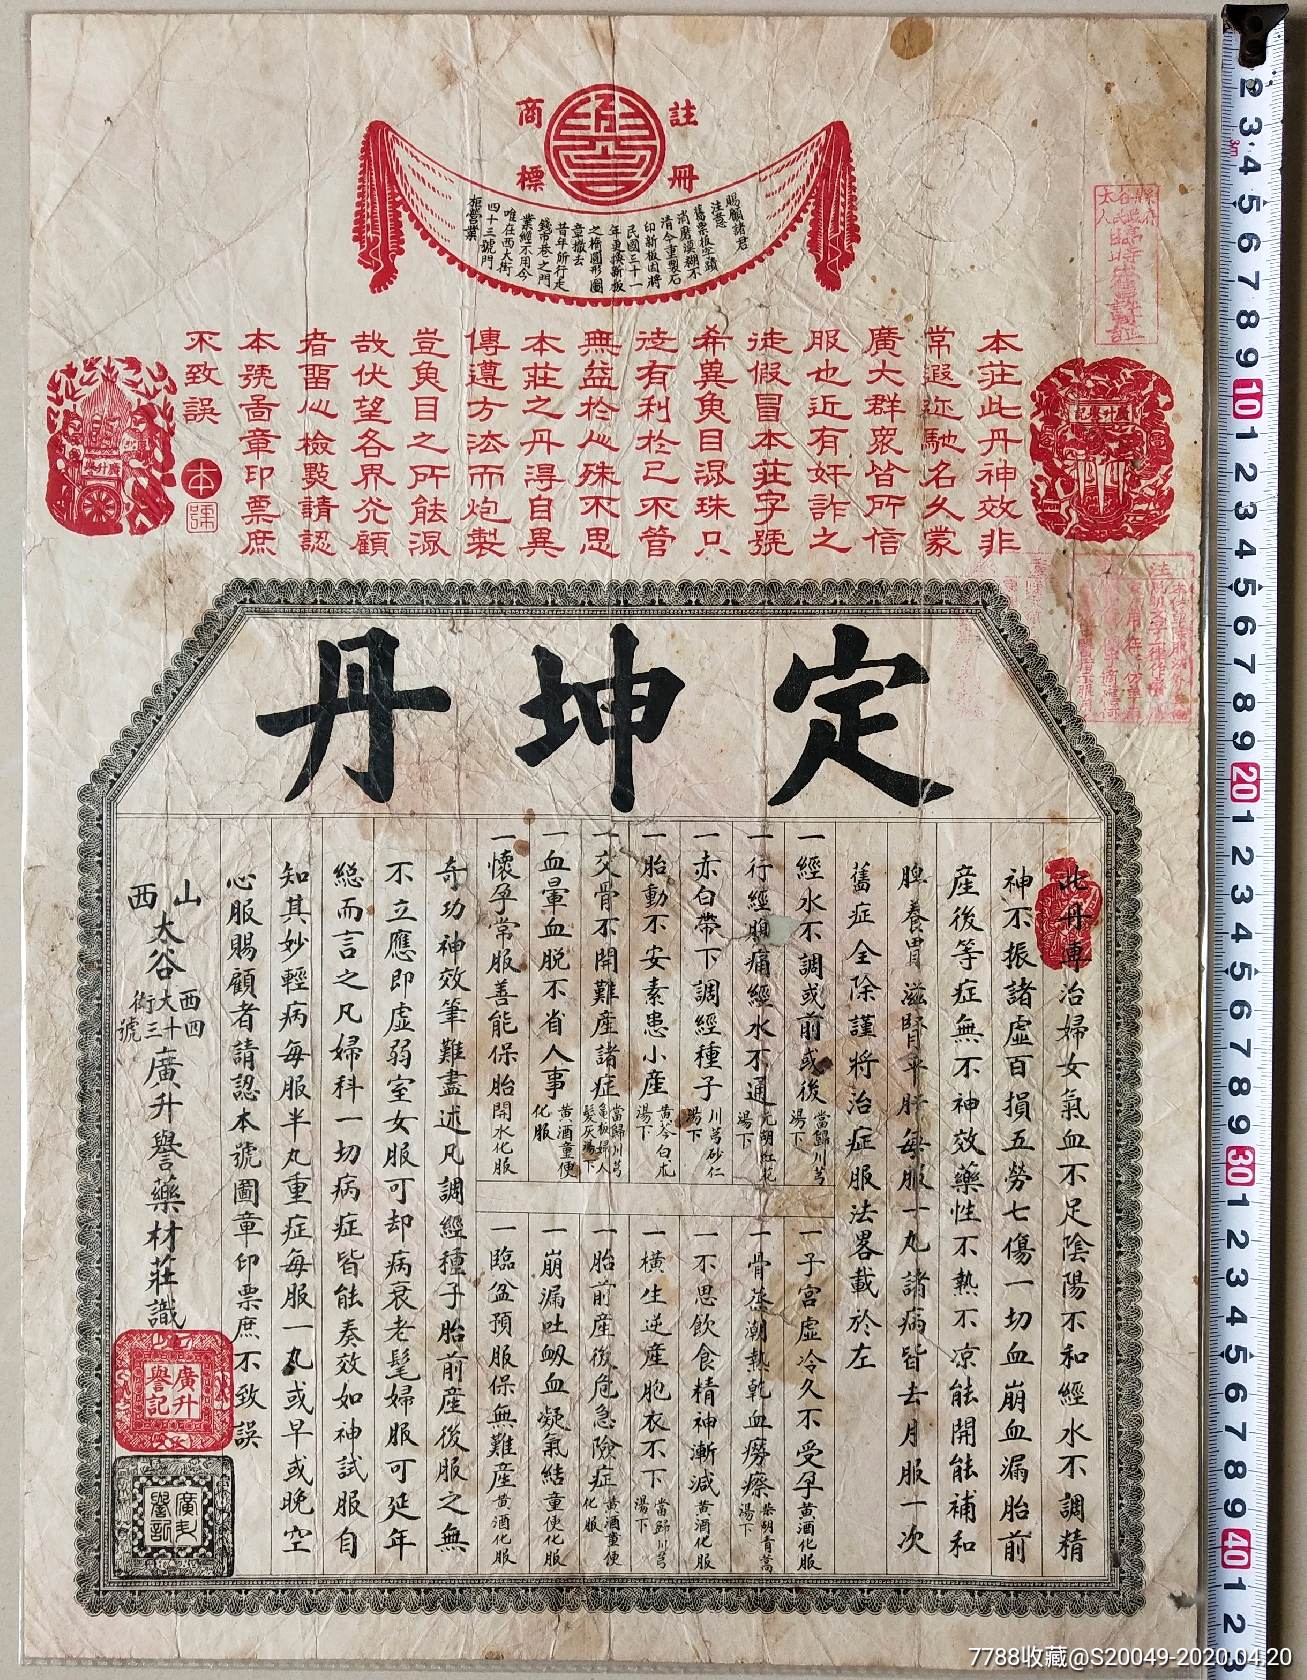 註冊
商標
賜顧諸君
注意
舊票板字蹟
消磨漠糊不
清今重製石
印新板因將
民國三十一
年更換新板
之橢圓形圖
章撤去
昔年所行走
錢市巷之門
業經不用今
唯在西大街
四十三號門
柜營業
本莊此丹神效非
常遐迩馳名久蒙
廣大群衆皆所信
服也近有奸詐之
徒假冒本莊字號
希兾魚目混珠只
徒有利於己不管
無益於心殊不思
本莊之丹得自異
傳遵方法而炮製
豈魚目之所能混
故伏望各界光顧
者畱心檢點請認
本號啚章印票庶
不致誤
本號
廣升譽記
廣升譽
定坤丹
此丹專治婦女氣血不足陰陽不和經水不調精
神不振諸虛百損五勞七傷一切血崩血漏胎前
產後等症無不神效藥性不熱不凉能開能補和
脾養胃滋腎平肝每服一丸諸病皆去月服一次
舊症全除謹將治症服法畧載於左
一經水不調或前或後 當歸川芎湯下
一行經腹痛經水不通 元胡紅花湯下
一赤白帶下調經種子 川芎砂仁湯下
一胎動不安素患小產 黃芩白朮湯下
一交骨不開難產諸症 當歸川芎龜板婦人髮灰湯下
一血暈血脫不省人事 黃酒童便化服
一懷孕常服善能保胎 開水化服
一子宮虛冷久不受孕 黃酒化服
一骨蒸潮熱乾血癆瘵 柴胡青蒿湯下
一不思飲食精神漸減 黃酒化服
一橫生逆產胞衣不下 當歸川芎湯下
一胎前產後危急險症 黃酒童便化服
一崩漏吐衂血凝氣結 童便化服
一臨盆預服保無難產 黃酒化服
奇功神效筆難盡述凡調經種子胎前產後服之無
不立應即虛弱室女服可却病衰老髦婦服可延年
総而言之凡婦科一切病症皆能奏效如神試服自
知其妙輕病每服半丸重症每服一丸或早或晚空
心服賜顧者請認本號圖章印票庶不致誤
山西太谷西大街四十三號廣升譽藥材莊識
廣升譽記
2 3 4 5 6 7 8 9 10 1 2 3 4 5 6 7 8 9 20 1 2 3 4 5 6 7 8 9 30 1 2 3 4 5 6 7 8 9 40 1 2 3
7788收藏@S20049-2020.04.20